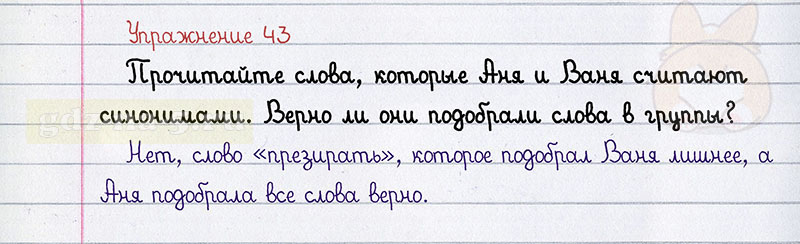 Упражнение 43
Прочитайте слова, которые Аня и Ваня считают
синонимами. Верно ли они подобрали слова в группы?
Нет, слово «презирать», которое подобрал Ваня лишнее, а
Аня подобрала все слова верно.